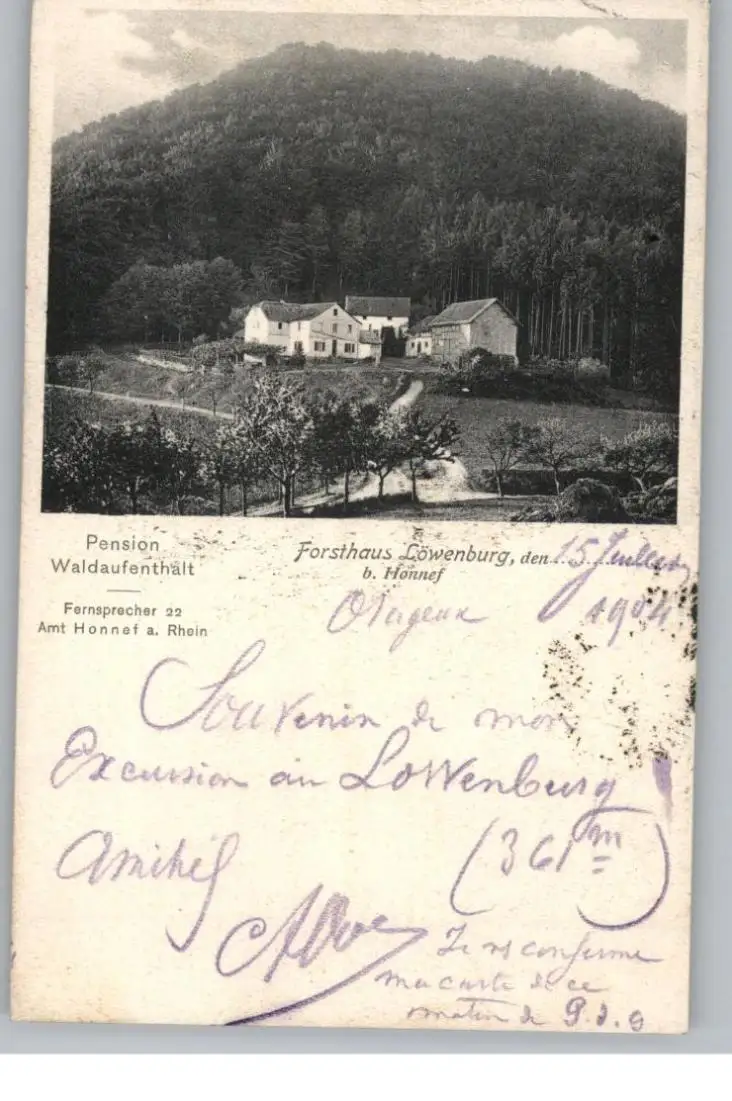 Pension
Waldaufenthalt
Fernsprecher 22
Amt Honnef a. Rhein
Forsthaus Löwenburg, den 15 Juillet
b. Honnef
1904
Souvenir de mon
Excursion au Lowenburg
(361 m)
Je vs confirme
ma carte de ce
matin de